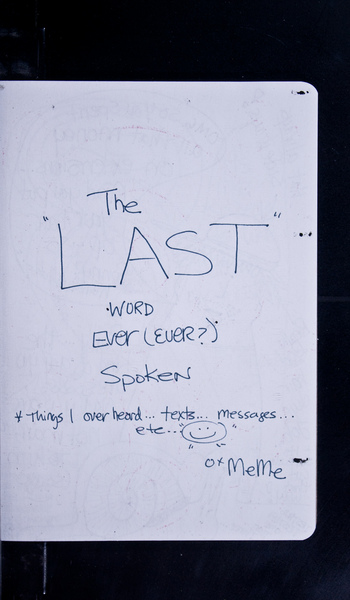 The
"LAST"
·WORD
EVER (EVER?)
Spoken
* Things I overheard... texts... messages...
etc...
ox MeMe